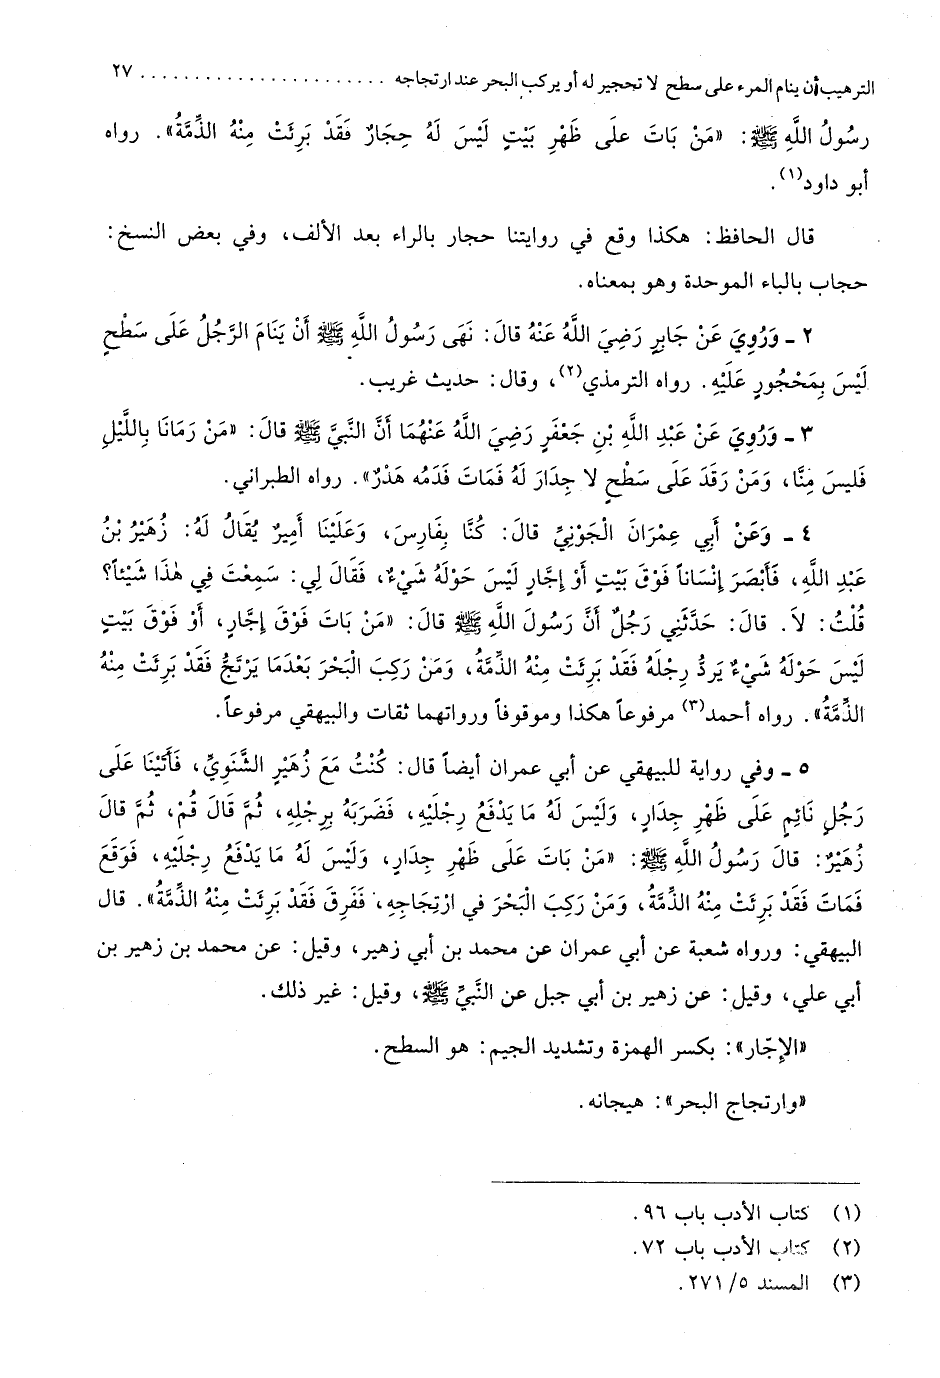 الترهيب أن ينام المرء على سطح لا تحجير له أو يركب البحر عند ارتجاجه ........................ ٢٧
رسُولُ اللَّهِ ﷺ: «مَنْ بَاتَ علَى ظَهْرِ بَيْتٍ لَيْسَ لَهُ حِجَارٌ فَقَدْ بَرِئَتْ مِنْهُ الذِّمَّةُ». رواه
أبو داود(١).
قال الحافظ: هكذا وقع في روايتنا حجار بالراء بعد الألف، وفي بعض النسخ:
حجاب بالباء الموحدة وهو بمعناه.
٢ ـ وَرُوِيَ عَنْ جَابِرٍ رَضِيَ اللَّهُ عَنْهُ قالَ: نَهَى رَسُولُ اللَّهِ ﷺ أَنْ يَنَامَ الرَّجُلُ عَلَى سَطْحٍ
لَيْسَ بِمَحْجُورٍ عَلَيْهِ. رواه الترمذي(٢)، وقال: حديث غريب.
٣ ـ وَرُوِيَ عَنْ عَبْدِ اللَّهِ بْنِ جَعْفَرٍ رَضِيَ اللَّهُ عَنْهُمَا أَنَّ النَّبِيَّ ﷺ قالَ: «مَنْ رَمَانَا بِاللَّيْلِ
فَليسَ مِنَّا، وَمَنْ رَقَدَ عَلَى سَطْحٍ لا جِدَارَ لَهُ فَمَاتَ فَدَمُه هَدْرٌ». رواه الطبراني.
٤ ـ وَعَنْ أَبِي عِمْرَانَ الْجَوْنِيِّ قالَ: كُنَّا بِفَارِسَ، وَعَلَيْنَا أَمِيرٌ يُقَالُ لَهُ: زُهَيْرُ بْنُ
عَبْدِ اللَّهِ، فَأَبْصَرَ إنْسَاناً فَوْقَ بَيْتٍ أَوْ إجَّارٍ لَيْسَ حَوْلَهُ شَيْءٌ، فَقَالَ لِي: سَمِعْتَ فِي هٰذَا شَيْئاً؟
قُلْتُ: لاَ. قالَ: حَدَّثَنِي رَجُلٌ أَنَّ رَسُولَ اللَّهِ ﷺ قالَ: «مَنْ بَاتَ فَوْقَ إجَّارٍ، أَوْ فَوْقَ بَيْتٍ
لَيْسَ حَوْلَهُ شَيْءٌ يَردُّ رِجْلَهُ فَقَدْ بَرِئَتْ مِنْهُ الذمَّةُ، وَمَنْ رَكِبَ الْبَحْرَ بَعْدَمَا يَرْتَجُّ فَقَدْ بَرِئَتْ مِنْهُ
الذِّمَّةُ». رواه أحمد(٣) مرفوعاً هكذا وموقوفاً ورواتهما ثقات والبيهقي مرفوعاً.
٥ ـ وفي رواية للبيهقي عن أبي عمران أيضاً قال: كُنْتُ مَعَ زُهَيْرٍ الشَّنَوِيِّ، فَأَتَيْنَا عَلَى
رَجُلٍ نَائِمٍ عَلَى ظَهْرِ جِدَارٍ، وَلَيْسَ لَهُ مَا يَدْفَعُ رِجْلَيْهِ، فَضَرَبَهُ بِرِجْلِهِ، ثُمَّ قَالَ قُمْ، ثُمَّ قالَ
زُهَيْرٌ: قالَ رَسُولُ اللَّهِ ﷺ: «مَنْ بَاتَ عَلَى ظَهْرِ جِدَارٍ، وَلَيْسَ لَهُ مَا يَدْفَعُ رِجْلَيْهِ، فَوَقَعَ
فَمَاتَ فَقَدْ بَرِئَتْ مِنْهُ الذِّمَّةُ، وَمَنْ رَكِبَ الْبَحْرَ في ارْتِجَاجِهِ، فَغَرِقَ فَقَدْ بَرِئَتْ مِنْهُ الذِّمَّةُ». قال
البيهقي: ورواه شعبة عن أبي عمران عن محمد بن أبي زهير، وقيل: عن محمد بن زهير بن
أبي علي، وقيل: عن زهير بن أبي جبل عن النَّبِيِّ ﷺ، وقيل: غير ذلك.
«الإجّار»: بكسر الهمزة وتشديد الجيم: هو السطح.
«وارتجاج البحر»: هيجانه.
(١) كتاب الأدب باب ٩٦.
(٢) كتاب الأدب باب ٧٢.
(٣) المسند ٥/ ٢٧١.